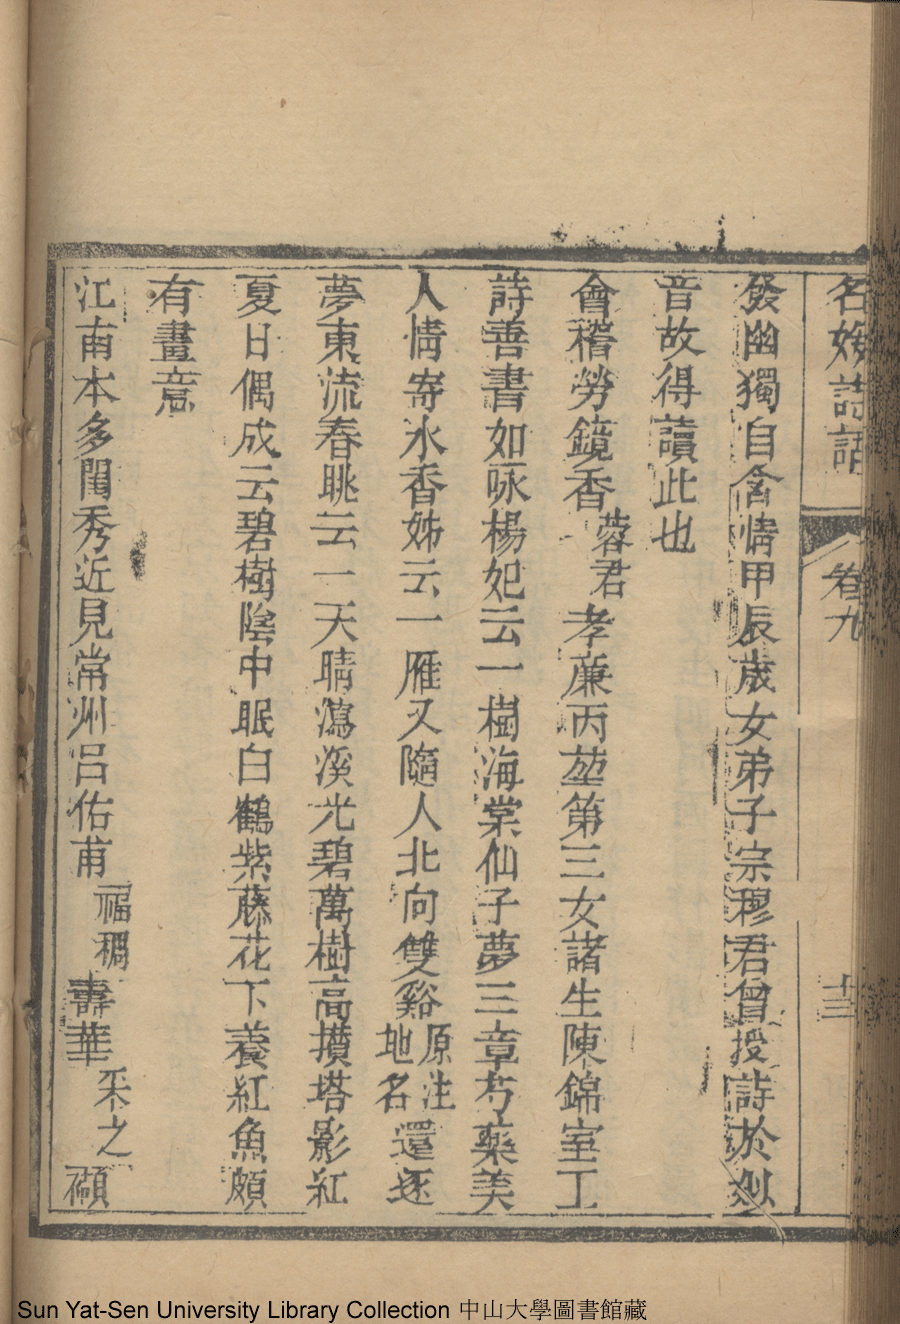 名媛詩話
卷九
十三
發幽獨自含情甲辰歲女弟子宗穆君曾授詩於
音故得讀此也
會稽勞鏡香蓉君孝廉丙堃第三女諸生陳錦室工
詩善書如咏楊妃云一樹海棠仙子夢三章芍藥美
人情寄水香姊云一雁又隨人北向雙谿原注地名還逐
夢東流春眺云一天晴瀉溪光碧萬樹高攢塔影紅
夏日偶成云碧樹陰中眠白鶴紫藤花下養紅魚頗
有畫意
江南本多閨秀近見常州呂佑甫福稠壽華采之纈
Sun Yat-Sen University Library Collection 中山大學圖書館藏